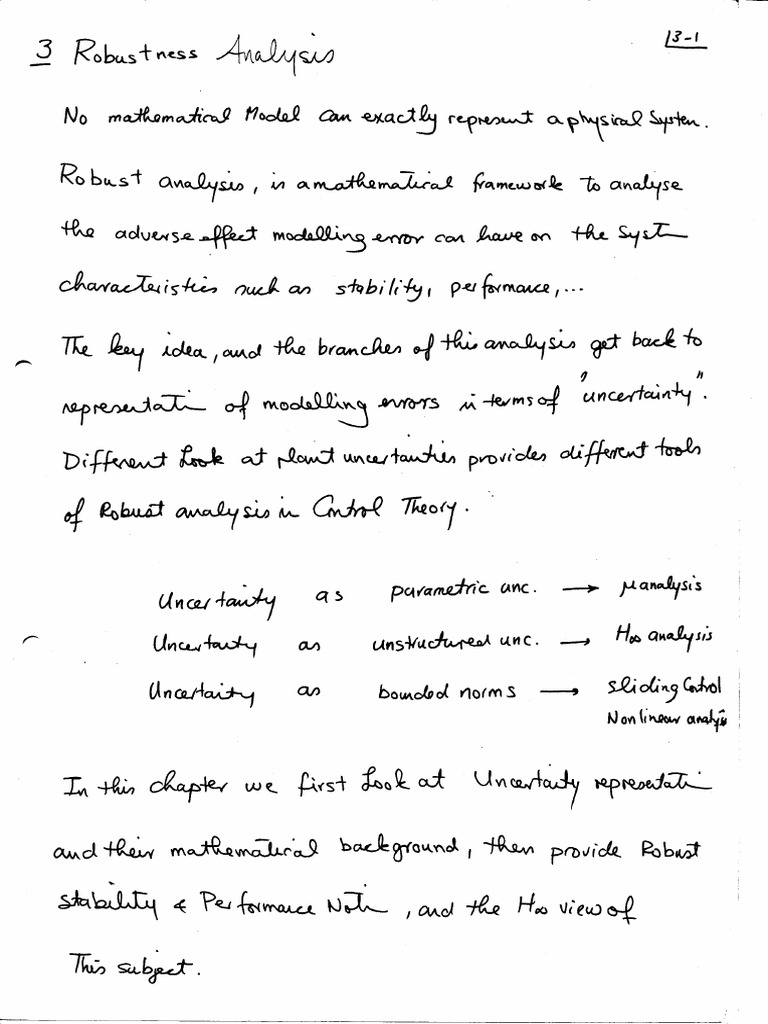 3 Robustness Analysis
13-1
No mathematical Model can exactly represent a physical System.
Robust analysis, is a mathematical framework to analyse
the adverse effect modelling error can have on the System
characteristics such as stability, performance,...
The key idea, and the branches of this analysis get back to
representation of modelling errors in terms of "uncertainty".
Different Look at plant uncertainties provides different tools
of Robust analysis in Control Theory.
Uncertainty as parametric unc. → μ analysis
Uncertainty as unstructured unc. → H∞ analysis
Uncertainty as bounded norms → Sliding Control
Nonlinear analysis
In this chapter we first Look at Uncertainty representation
and their mathematical background, then provide Robust
stability & Performance Notion, and the H∞ view of
This subject.